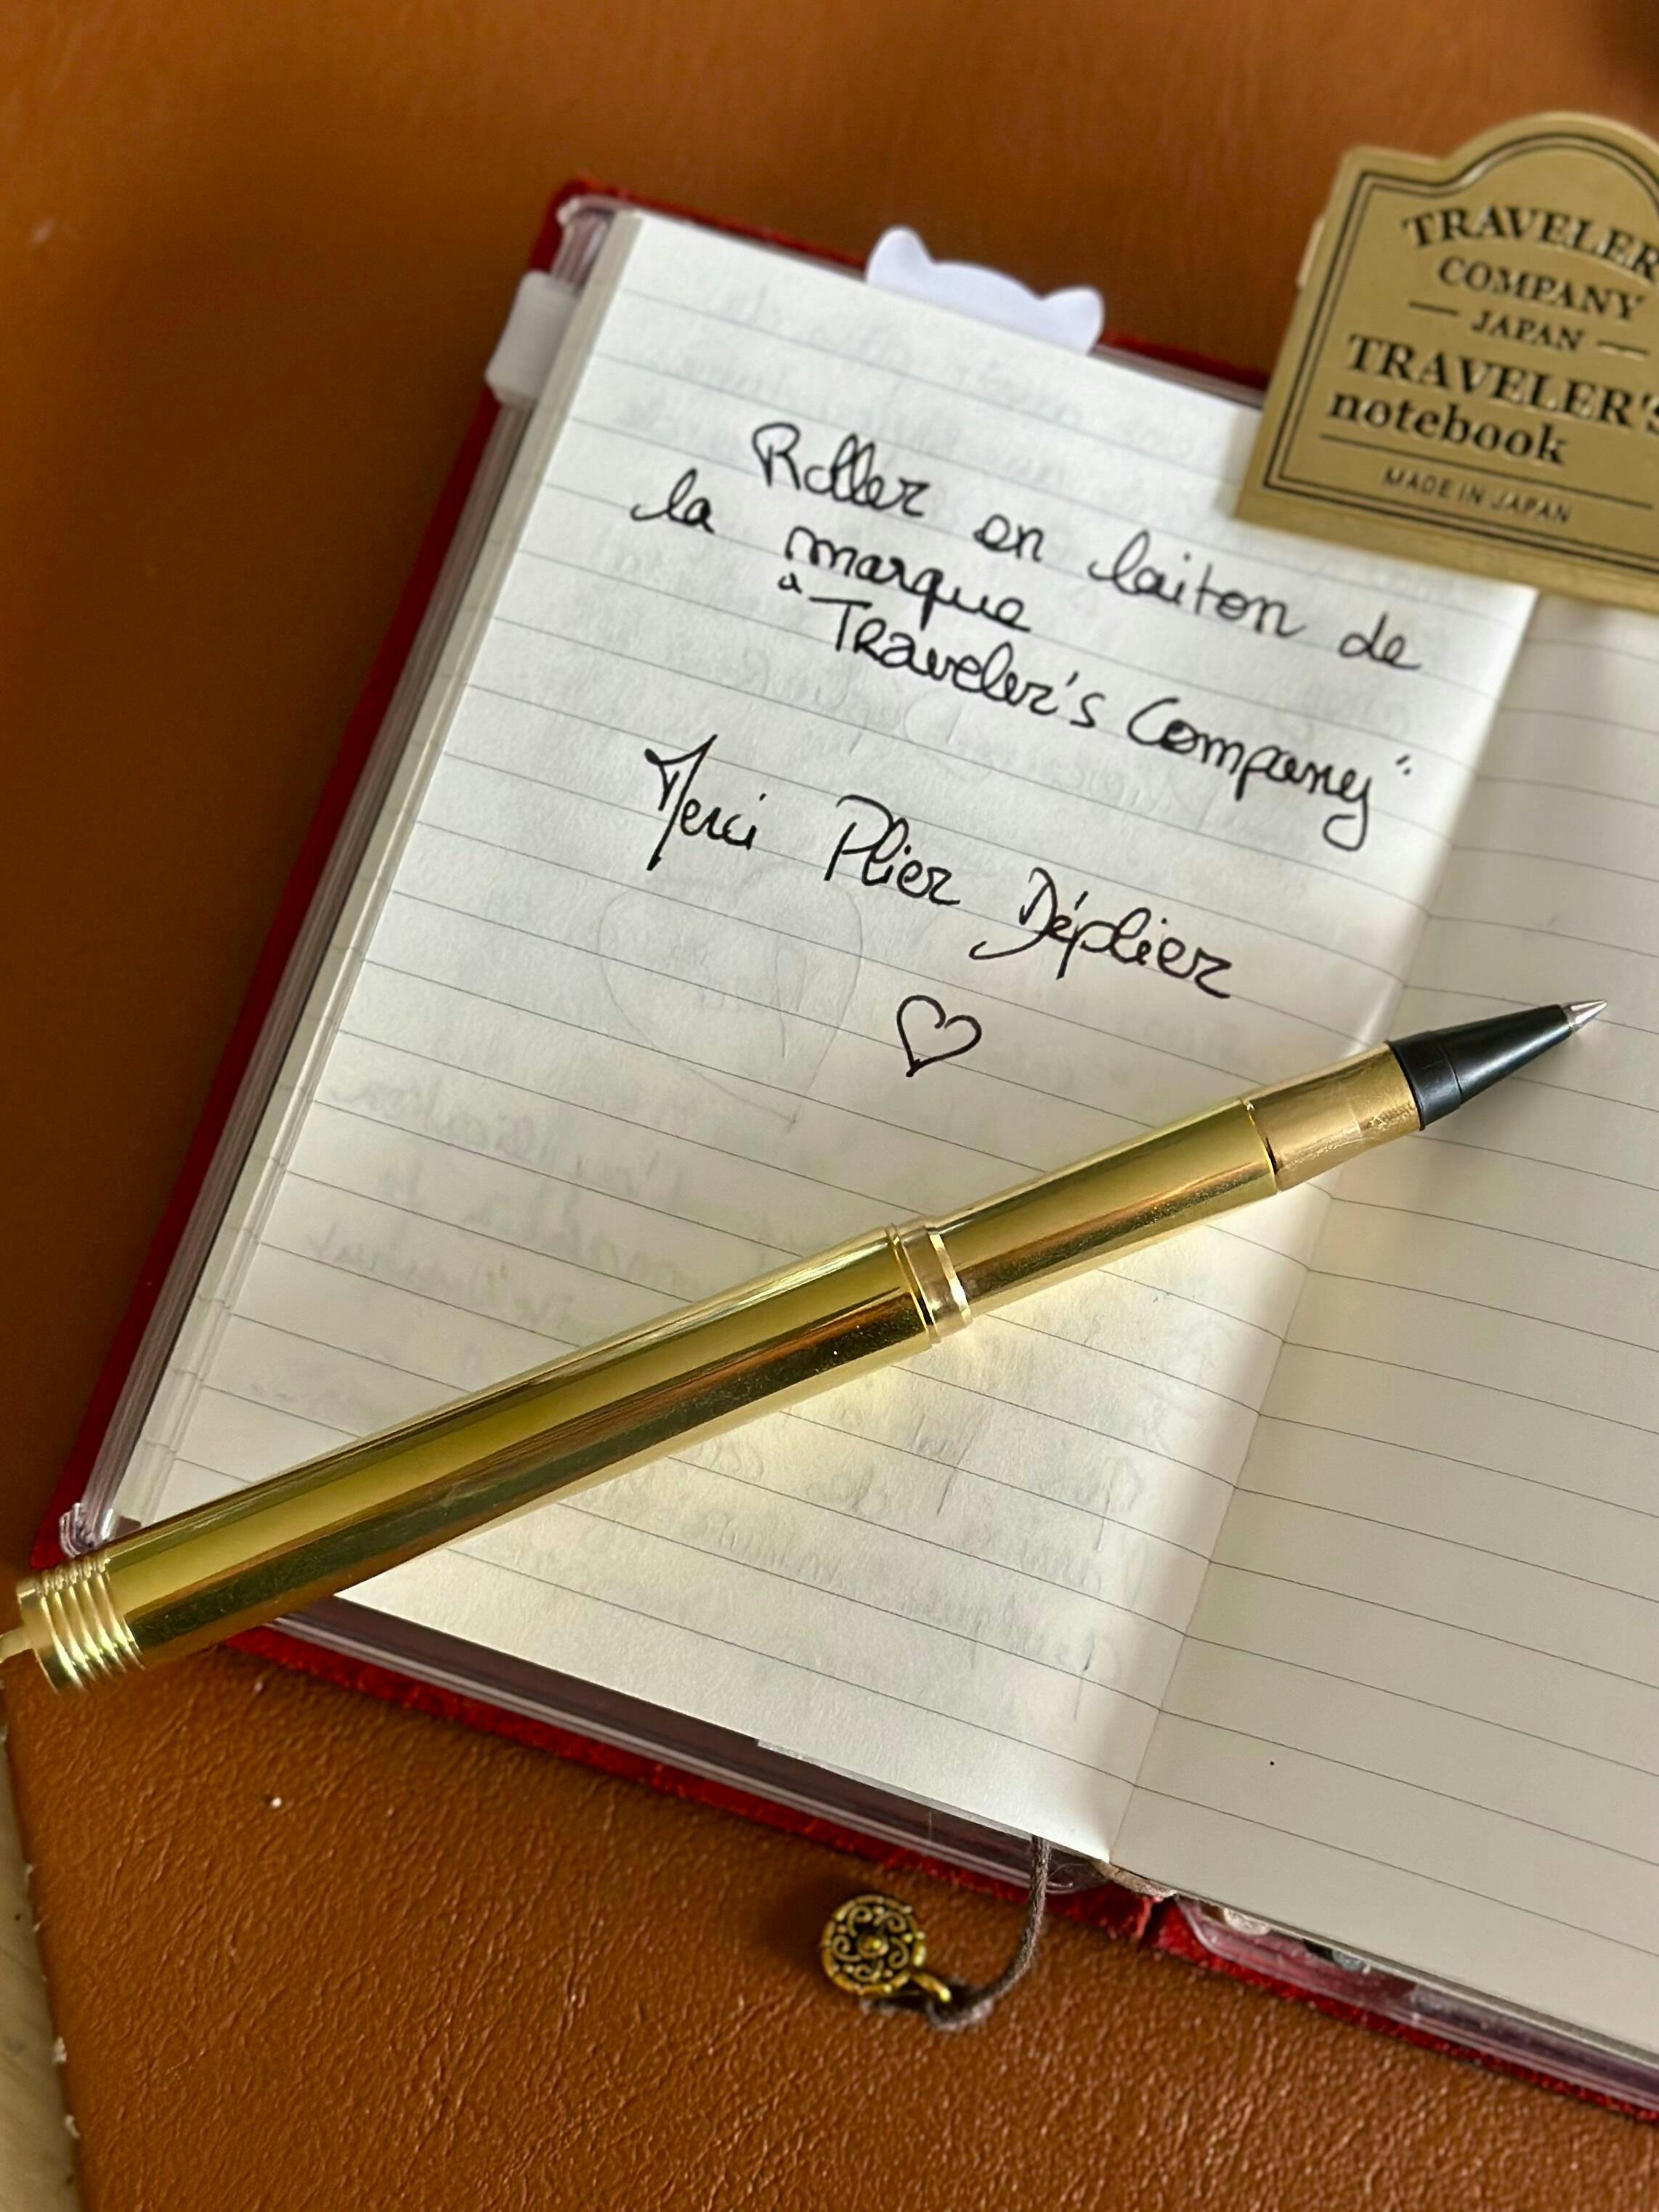 Roller en laiton de
la marque
"Traveler's Company"
Merci Plier Déplier
TRAVELER
COMPANY
JAPAN
TRAVELER'S
notebook
MADE IN JAPAN